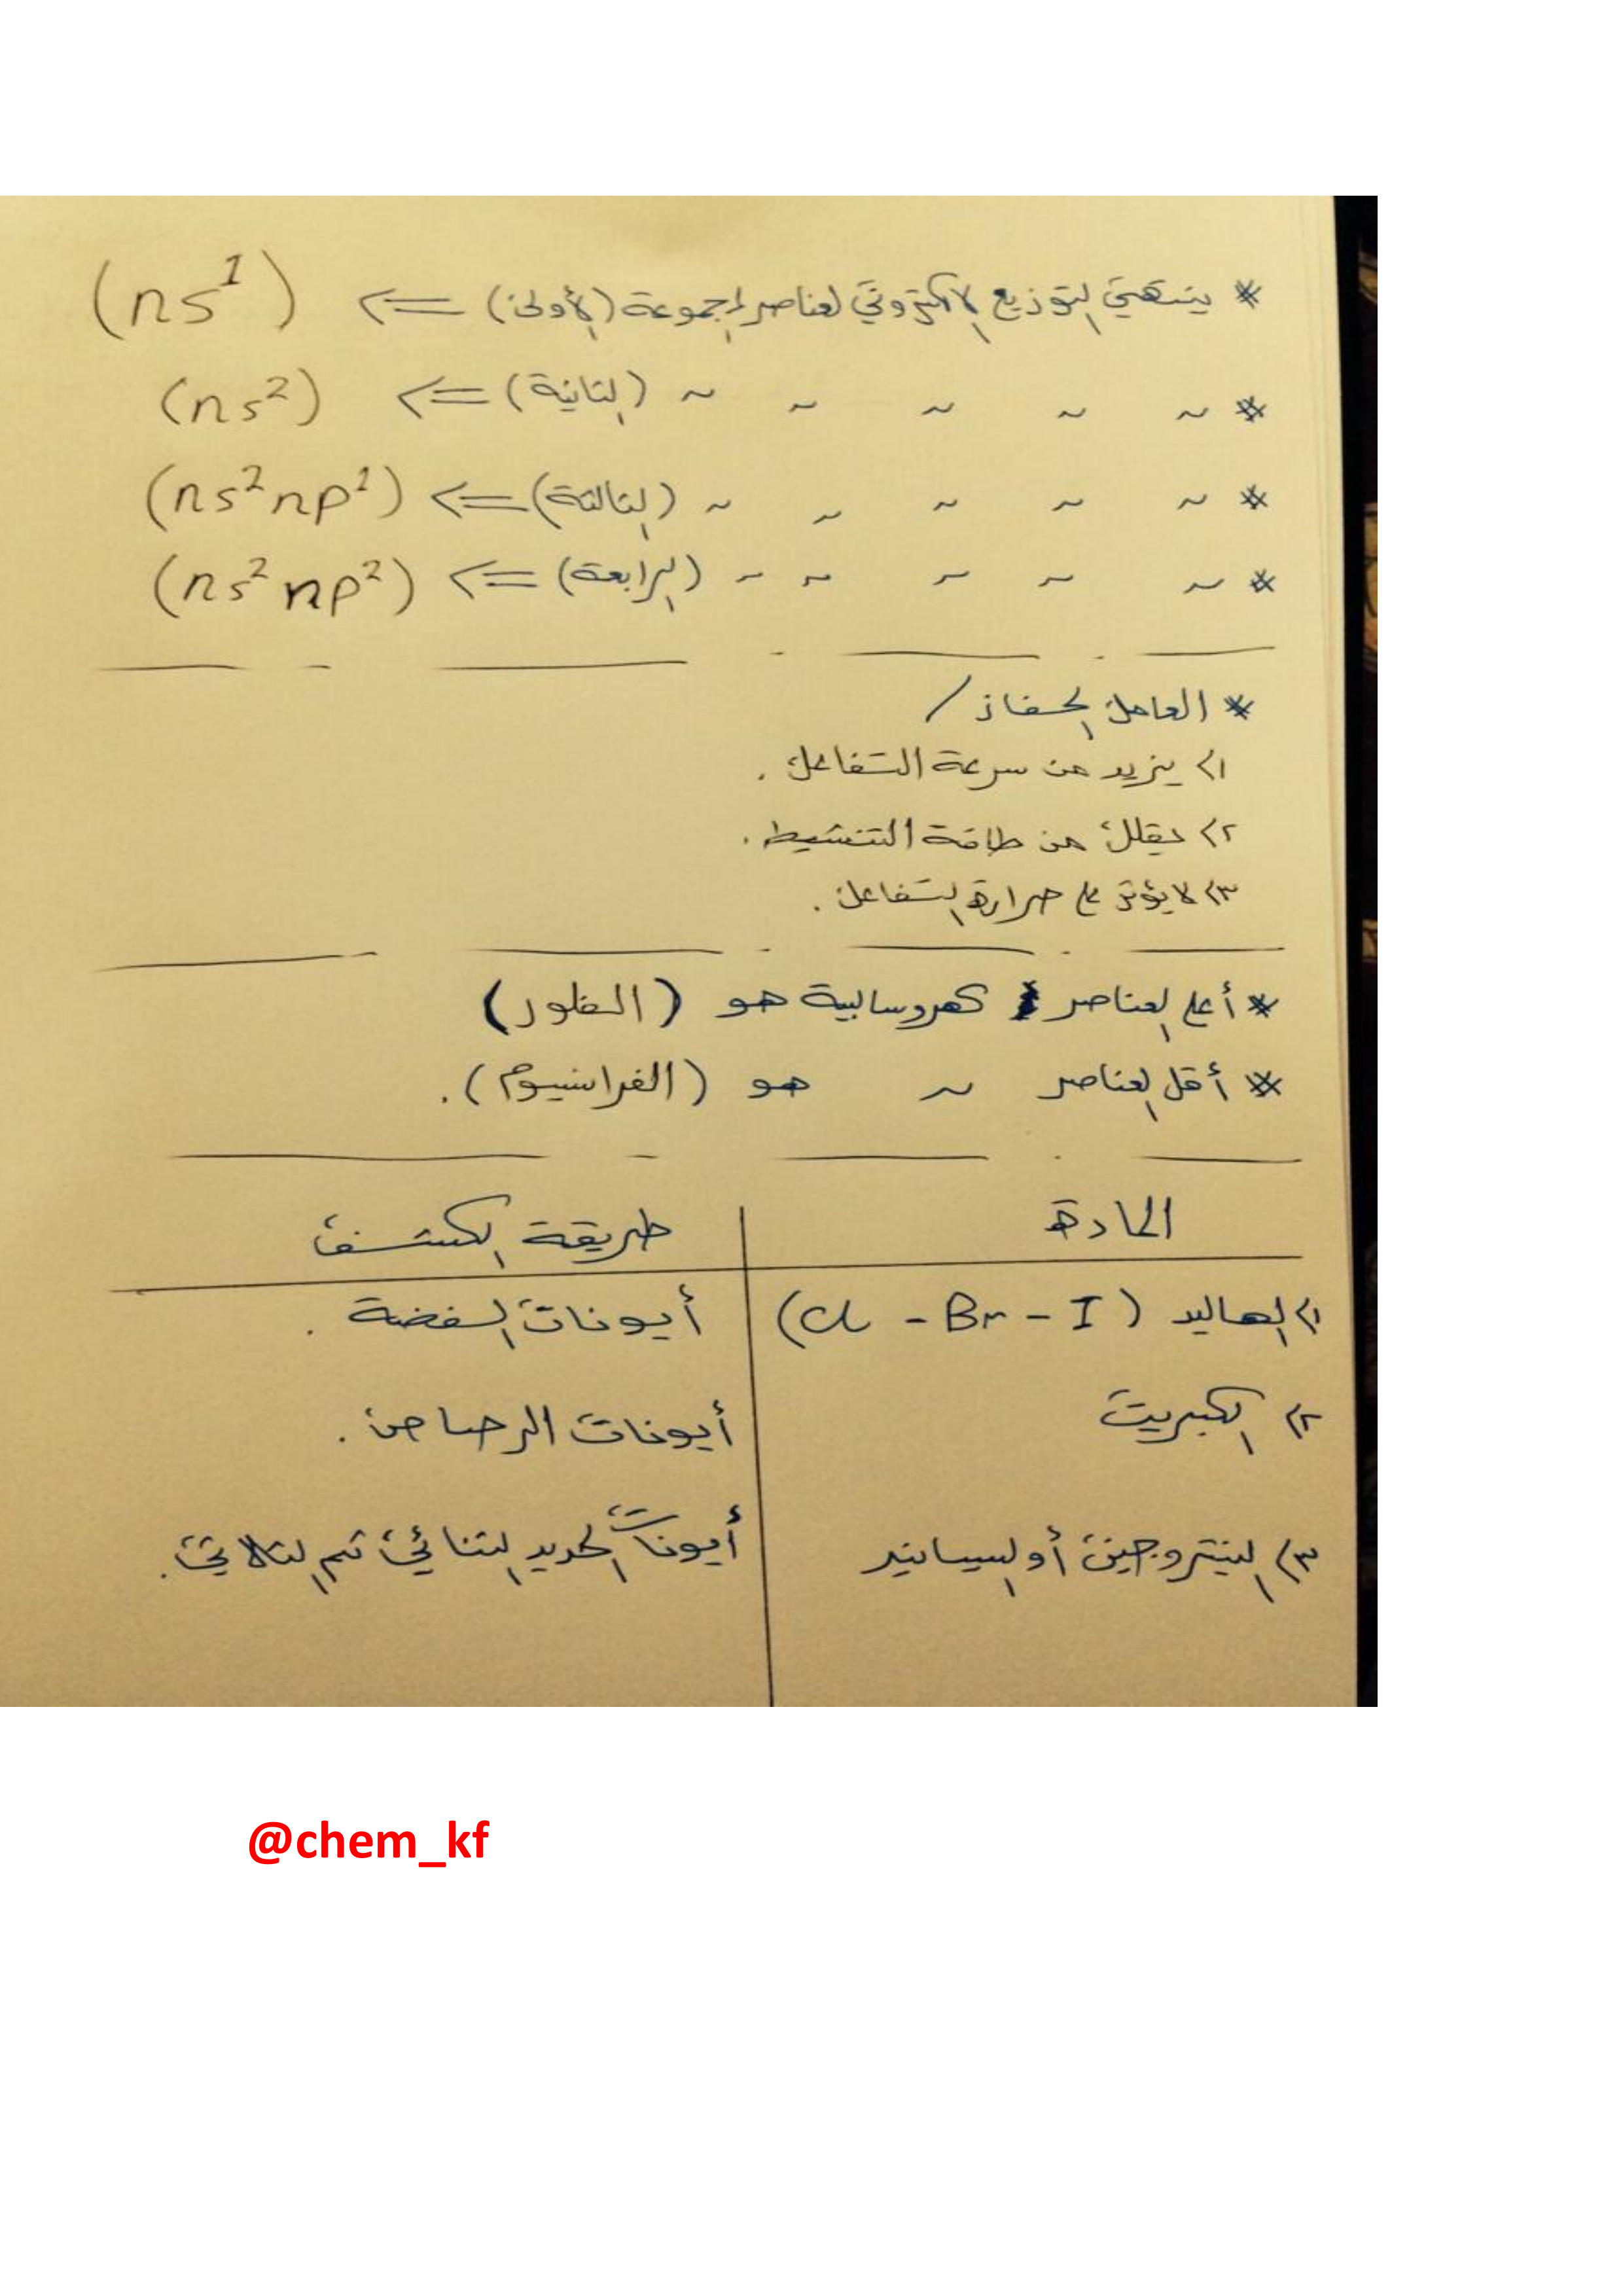 * ينتهي التوزيع الالكتروني لعناصر المجموعة (الأولى) <= (ns¹)
* ~ ~ ~ ~ ~ (الثانية) <= (ns²)
* ~ ~ ~ ~ ~ (الثالثة) <= (ns²np¹)
* ~ ~ ~ ~ ~ (الرابعة) <= (ns²np²)
* العامل الحفاز /
١) يزيد من سرعة التفاعل .
٢) يقلل من طاقة التنشيط .
٣) لا يؤثر على حرارة التفاعل .
* أعلى العناصر كهروسالبية هو (الفلور)
* أقل العناصر ~ هو (الفرانسيوم) .
المادة | طريقة الكشف
١) الهاليد (Cl - Br - I) | أيونات الفضة .
٢) الكبريت | أيونات الرصاص .
٣) النيتروجين أو السيانيد | أيونات الحديد الثنائي ثم الثلاثي .
@chem_kf